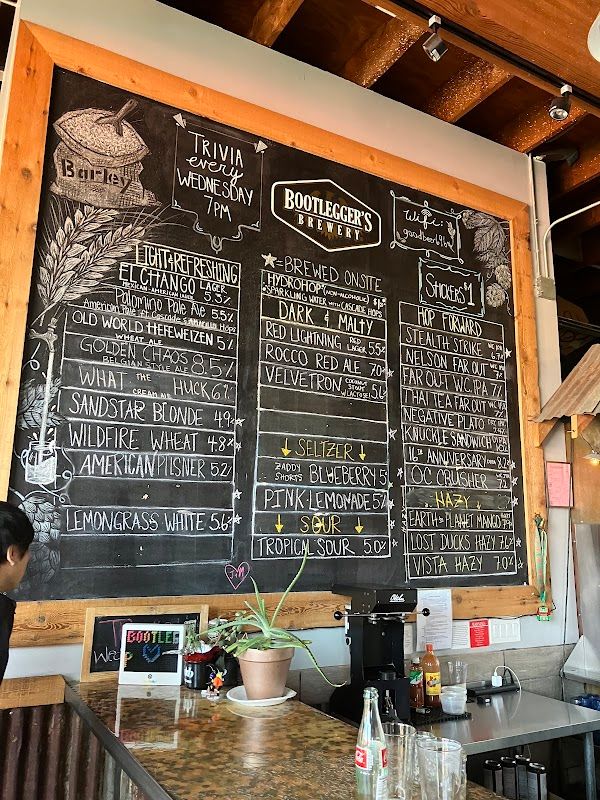 Barley
TRIVIA
every
WEDNESDAY
7PM
BOOTLEGGER'S
BREWERY
Wifi:
STICKERS $1
LIGHT & REFRESHING
EL CHANGO LAGER
MEXICAN AMERICAN LAGER 5.3%
Palomino Pale Ale 5.5%
American Pale w/ Cascade & Amarillo Hops
OLD WORLD HEFEWEIZEN 5%
WHEAT ALE
GOLDEN CHAOS 8.5%
BELGIAN STYLE ALE
WHAT THE HUCK 6%
CREAM ALE
SANDSTAR BLONDE 4.9%
WILDFIRE WHEAT 4.8%
AMERICAN PILSNER 5.2%
LEMONGRASS WHITE 5.6%
★=BREWED ONSITE
HYDROHOP (NON-ALCOHOLIC)
SPARKLING WATER WITH CASCADE HOPS
DARK & MALTY
RED LIGHTNING RED LAGER 5.5%
ROCCO RED ALE 7.0%
VELVETRON COCONUT STOUT w/LACTOSE
↓ SELTZER ↓
ZADDY SHORTS BLUEBERRY 5
PINK LEMONADE 5%
↓ SOUR ↓
TROPICAL SOUR 5.0%
HOP FORWARD
STEALTH STRIKE WC IPA 6.7%
NELSON FAR OUT
FAR OUT W.C. IPA 7%
THAI TEA FAR OUT
NEGATIVE PLATO
KNUCKLE SANDWICH
16th ANNIVERSARY 8.2%
OC CRUSHER
HAZY
EARTH = PLANET MANGO
LOST DUCKS HAZY 7.6%
VISTA HAZY 7.0%
J+M
BOOTLEG
We